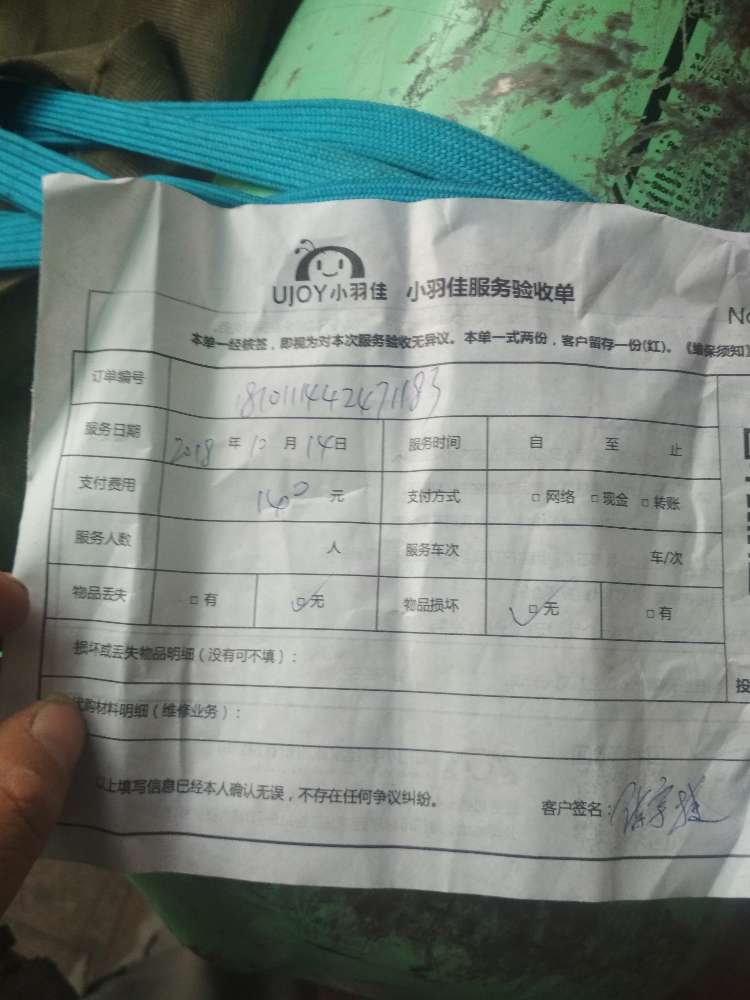 UJOY小羽佳 小羽佳服务验收单
No
本单一经核签，即视为对本次服务验收无异议。本单一式两份，客户留存一份(红)。《维保须知》
订单编号
服务日期 2018 年 10 月 14 日 服务时间 自 至 止
支付费用 140 元 支付方式 □ 网络 □ 现金 □ 转账
服务人数 人 服务车次 车/次
物品丢失 □ 有 □ 无 物品损坏 □ 无 □ 有
损坏或丢失物品明细（没有可不填）：
代购材料明细（维修业务）：
投
以上填写信息已经本人确认无误，不存在任何争议纠纷。
客户签名：